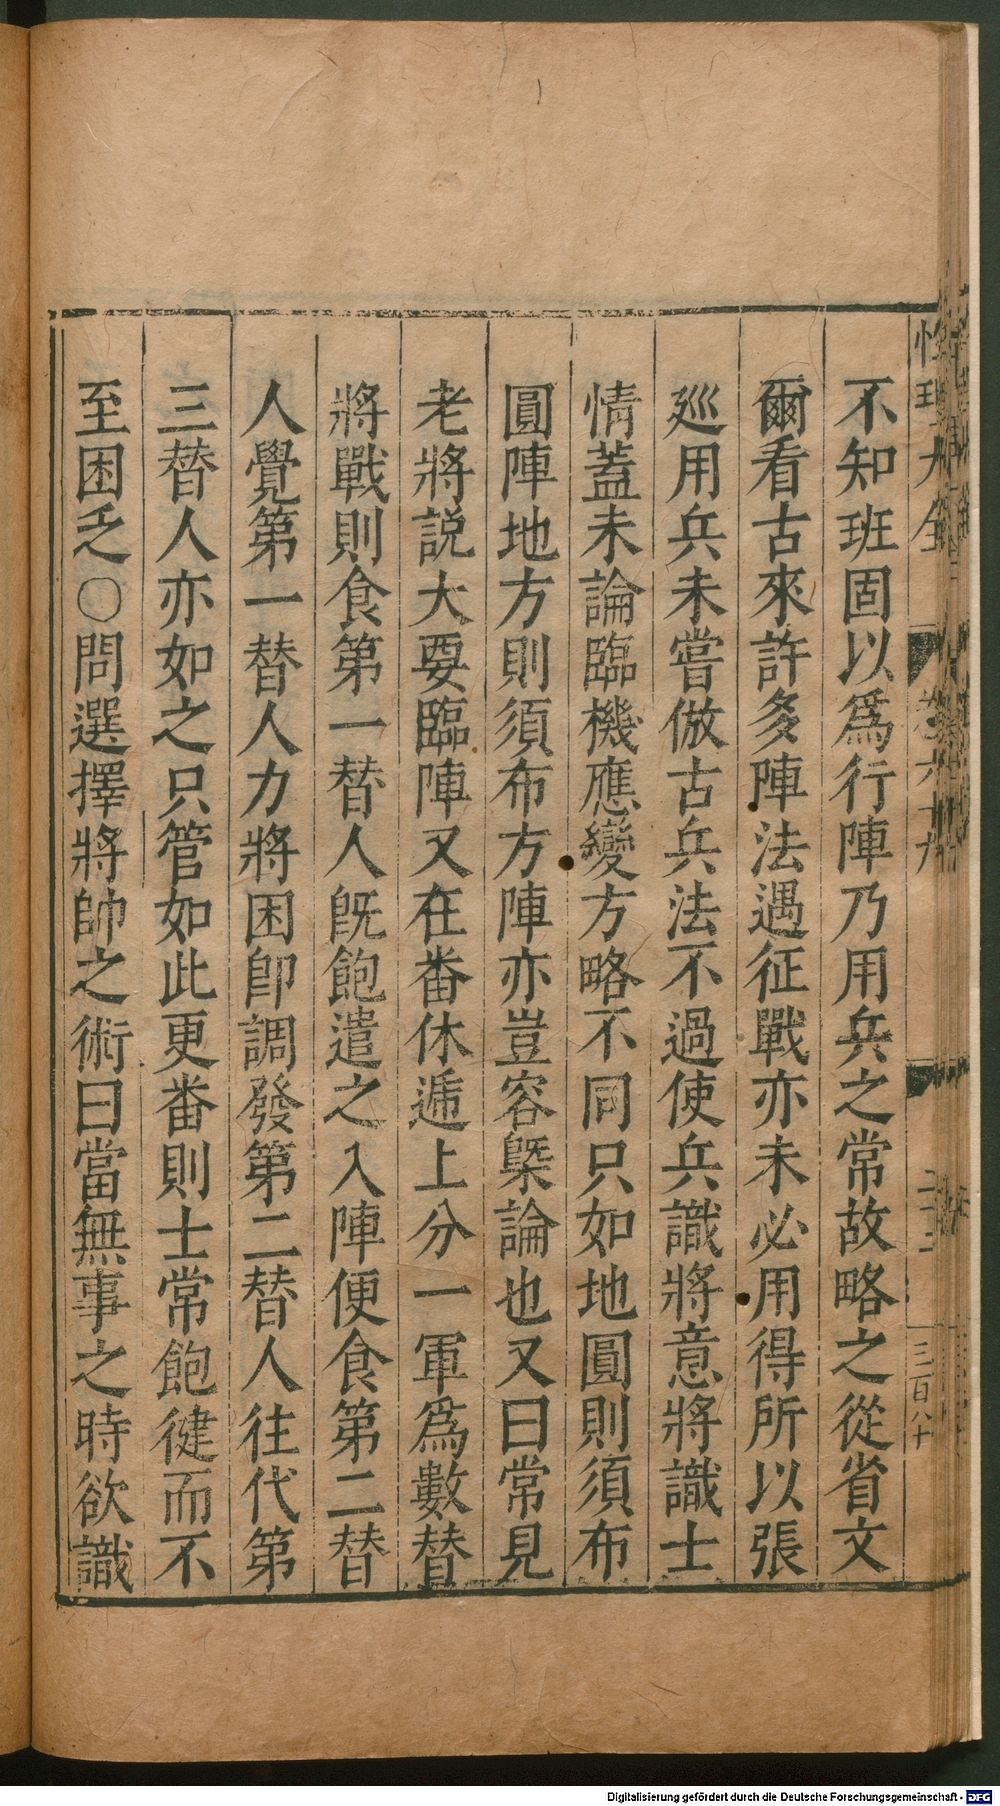 不知班固以爲行陣乃用兵之常故略之從省文
爾看古來許多陣法遇征戰亦未必用得所以張
廵用兵未嘗倣古兵法不過使兵識將意將識士
情蓋未論臨機應變方略不同只如地圓則須布
圓陣地方則須布方陣亦豈容槩論也又曰常見
老將説大要臨陣又在番休遞上分一軍爲數替
將戰則食第一替人旣飽遣之入陣便食第二替
人覺第一替人力將困卽調發第二替人往代第
三替人亦如之只管如此更番則士常飽徤而不
至困乏○問選擇將帥之術曰當無事之時欲識
三百八十
Digitalisierung gefördert durch die Deutsche Forschungsgemeinschaft - DFG